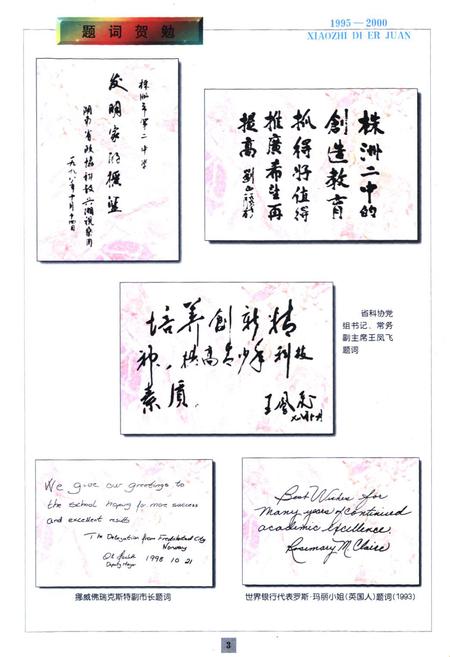 题词贺勉
1995—2000
XIAOZHI DI ER JUAN
株洲市第二中学
发明家的摇篮
湖南省政协科技
株洲二中的
創造教育
抓得好值得
推廣希望再
提高
省科协党
组书记、常务
副主席王凤飞
题词
培养創新精
神，提高青少年科技
素质
王凤飞
We give our greetings to
the school hoping for more success
and excellent results
The Delegation from Fredrikstad City
Norway
Deputy Mayor
1998 10 21
Best Wishes for
many years of continued
academic excellence
Rosemary McClaire
挪威佛瑞克斯特副市长题词
世界银行代表罗斯·玛丽小姐(英国人)题词(1993)
3